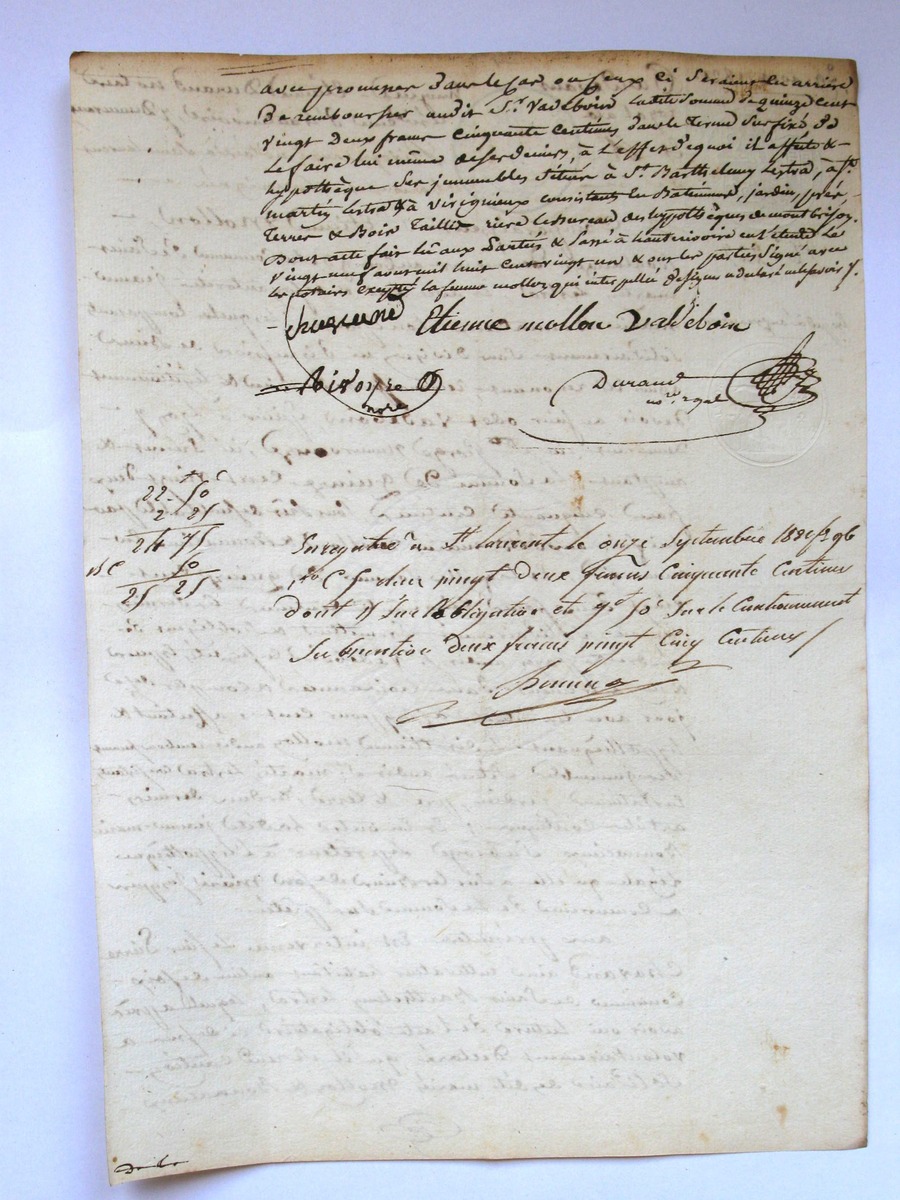 avec promesse dans le cas ou ceux ci seraient en arriere
De rembourser audit Sr. Valeboin ladite somme de quinze cent
vingt deux francs cinquante centimes dans le terme sus fixé de
le faire lui même de ses deniers, à l'effet de quoi il affecte &
hypothèque ses immeubles situés à St. Barthelemy Lestra, à St.
martin Lestra & à virigneux consistant en Batiments, jardin, prés
Terres & Bois Taillis rière le Bureau des hypothèques de montbrison.
Dont acte fait lû aux Parties & Passé à hauterivoire en l'étude le
vingt neuf aout mil huit cent vingt un & ont les parties signé avec
les notaires excepté la femme mollon qui interpellée de signer a declaré ne le savoir
Etienne mollon Valeboin
Durand
nore. royal
nore
22 - 50c
2 - 25
24 75
50
25 25
Enregistré a St laurent le onze Septembre 1821 fo 96
ro C 
vingt deux francs Cinquante Centimes
dont 15f Sur l'obligation et 7f 50c Sur le Cautionnement
Subvention deux francs vingt Cinq Centimes